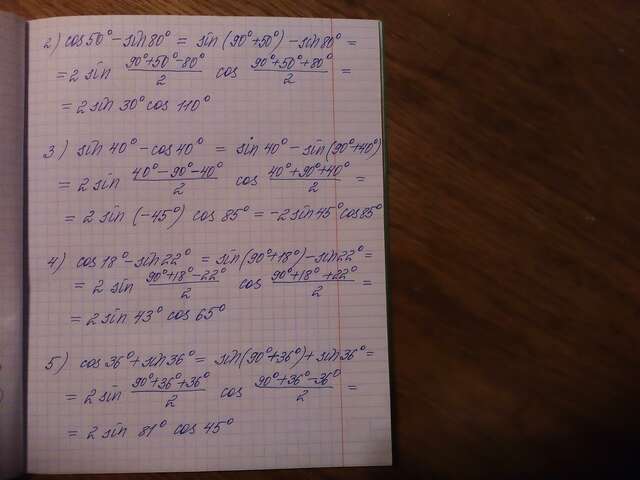 2) cos50°-sin80° = sin(90°+50°)-sin80° =
= 2 sin (90°+50°-80°)/2 cos (90°+50°+80°)/2 =
= 2 sin 30° cos 110°
3) sin 40°-cos 40° = sin 40°-sin(90°+40°)
= 2 sin (40°-90°-40°)/2 cos (40°+90°+40°)/2 =
= 2 sin (-45°) cos 85° = -2 sin 45° cos 85°
4) cos 18°-sin 22° = sin(90°+18°)-sin 22° =
= 2 sin (90°+18°-22°)/2 cos (90°+18°+22°)/2 =
= 2 sin 43° cos 65°
5) cos 36°+sin 36° = sin(90°+36°)+sin 36° =
= 2 sin (90°+36°+36°)/2 cos (90°+36°-36°)/2 =
= 2 sin 81° cos 45°